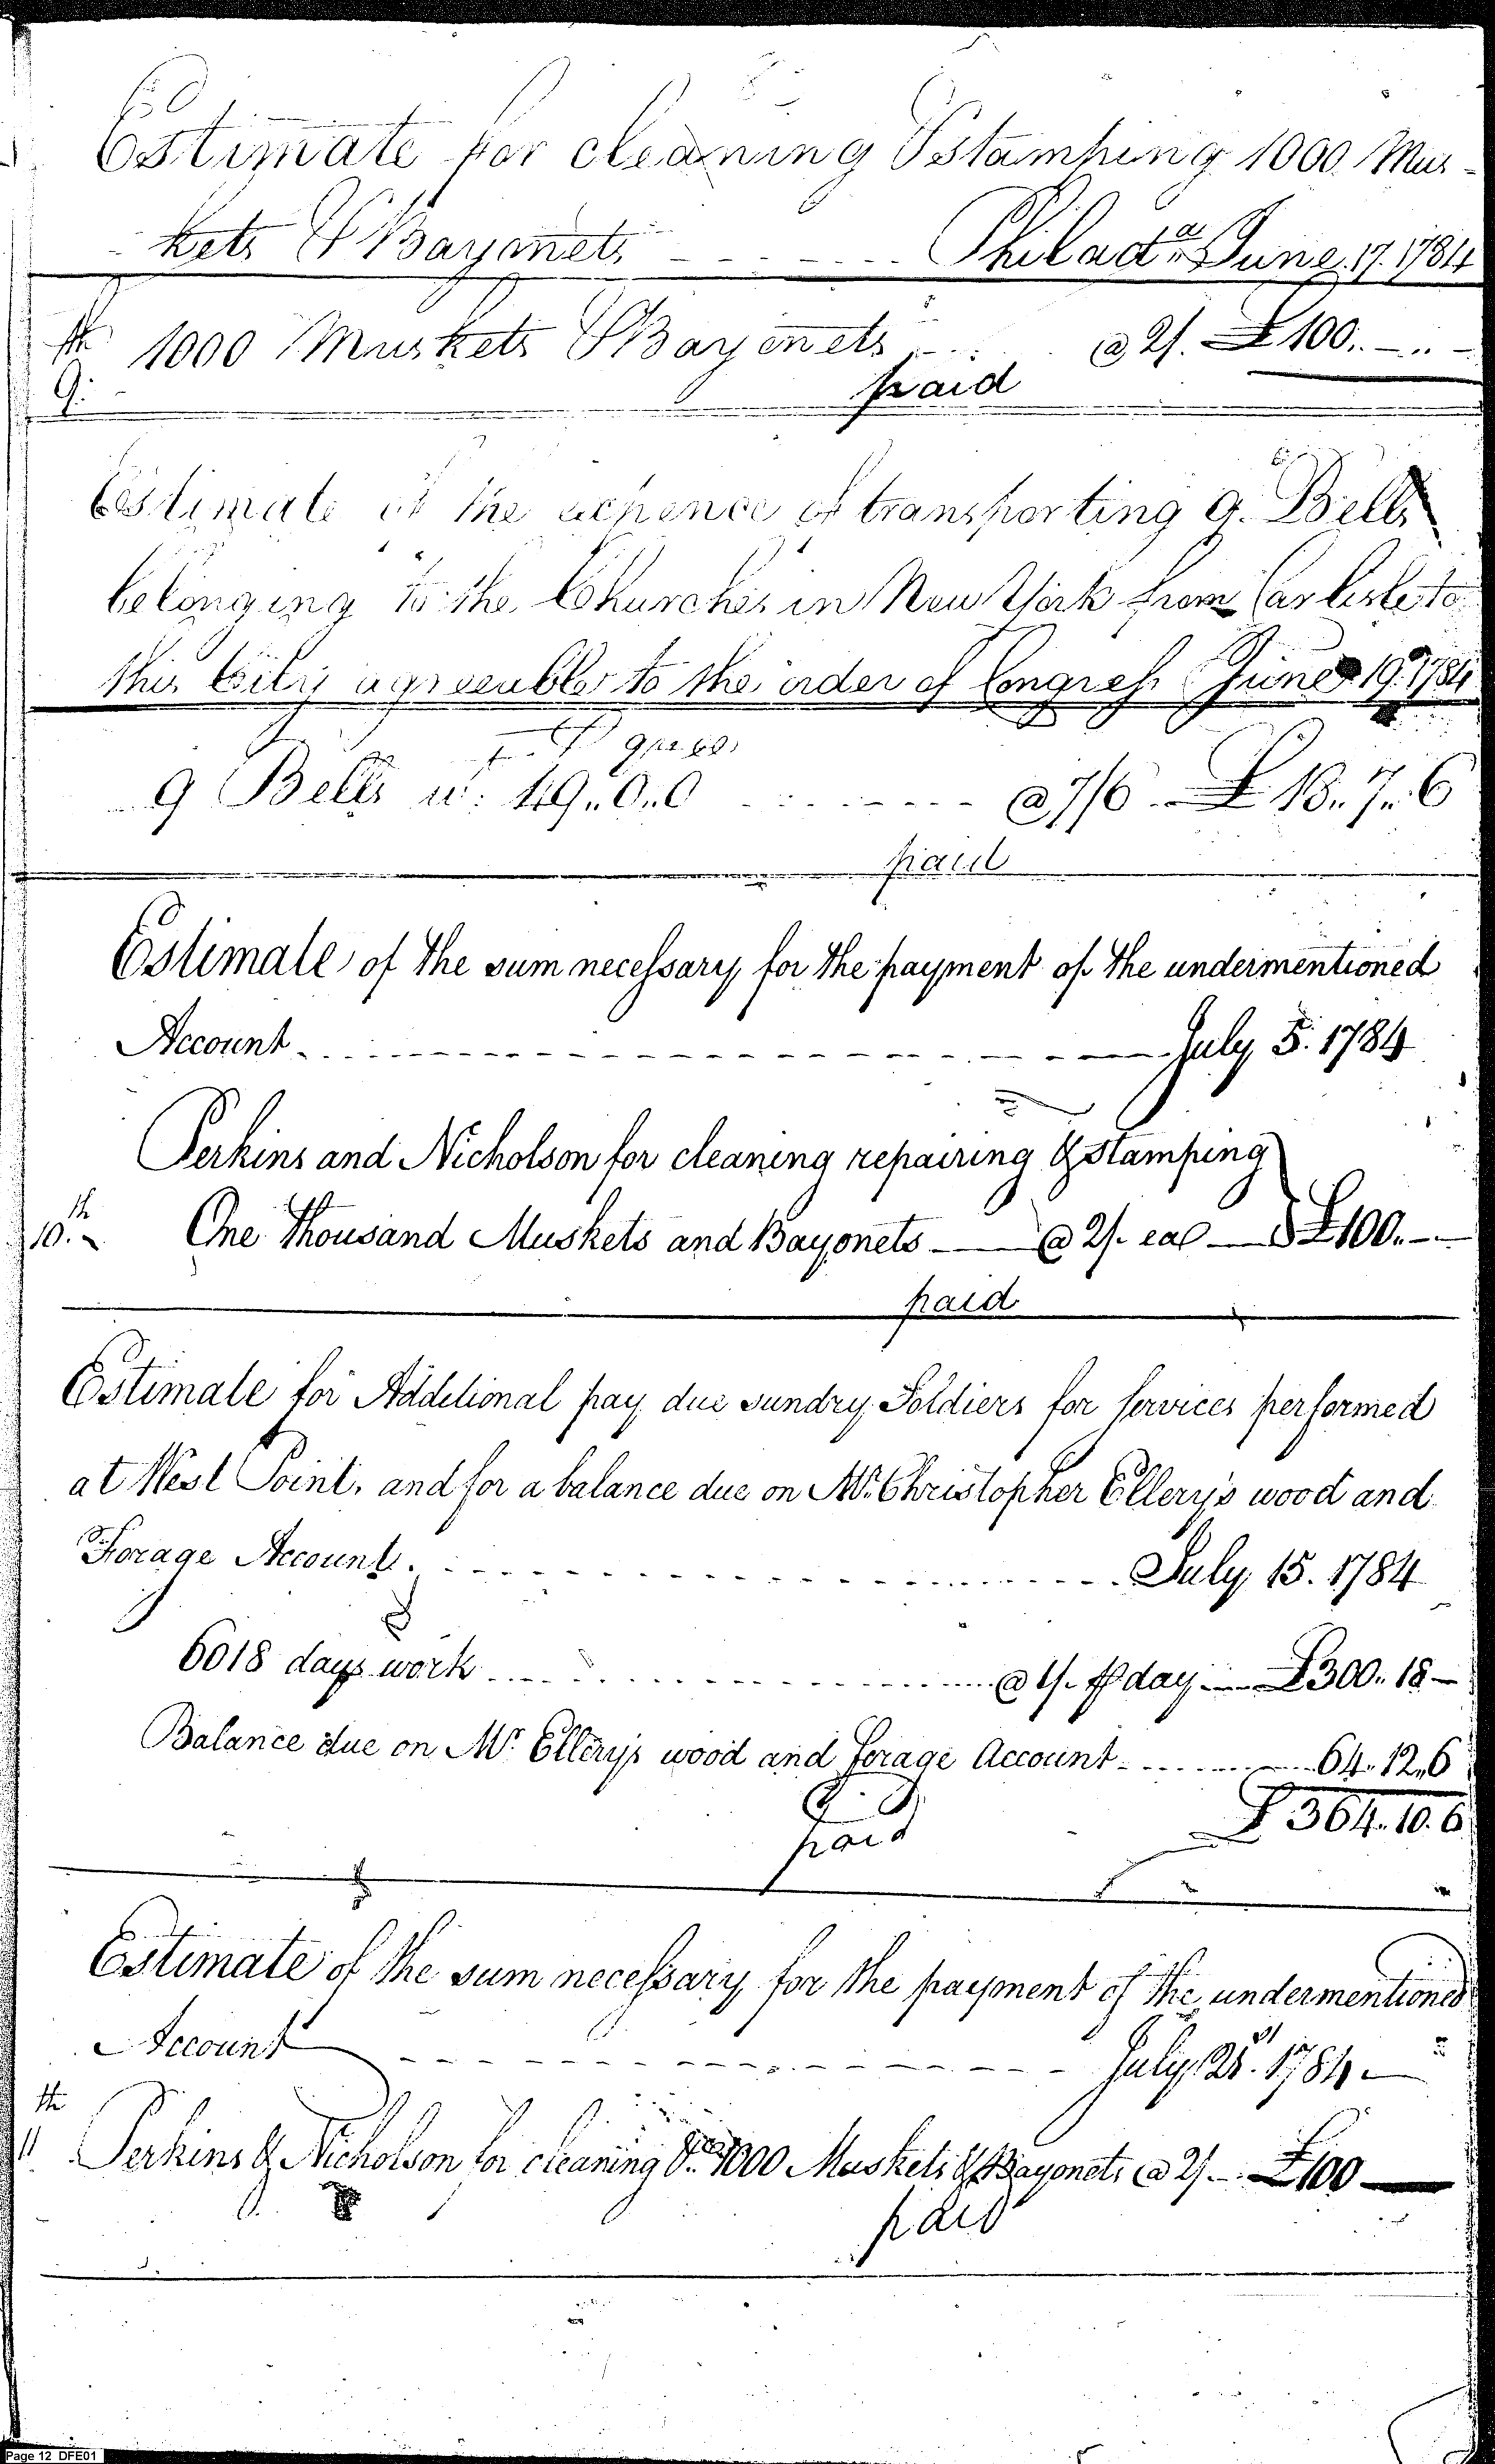 Estimate for cleaning & stamping 1000 Mus-
kets & Bayonets - - - - - - Philad.a June 17. 1784
th
9. 1000 Muskets & Bayonets @ 2/. £100.. - .. -
paid
Estimate of the expence of transporting 9. Bells
belonging to the Churches in New York from Carlisle to
this City agreeable to the order of Congress June 19. 1784
9 Bells w. 49..0..0 - - - - - @ 7/6 - £ 18..7..6
paid
Estimate of the sum necessary for the payment of the undermentioned
Account - - - - - - - - - - July 5. 1784
Perkins and Nicholson for cleaning repairing & stamping
10.th One thousand Muskets and Bayonets - @ 2/. ea - £100. - -
paid
Estimate for Additional pay due sundry Soldiers for services performed
at West Point, and for a balance due on Mr. Christopher Ellery's wood and
Forage Account. - - - - - - - - - - July 15. 1784
6018 days work - - - - - - - - - - @ 1/. ⅌ day - £300.. 18 -
Balance due on Mr. Ellery's wood and forage Account - - - - 64.. 12..6
£ 364.. 10. 6
paid
Estimate of the sum necessary for the payment of the undermentioned
Account - - - - - - - - - - July 21st. 1784 -
11th Perkins & Nicholson for cleaning &ca 1000 Muskets & Bayonets @ 2/ - £100 -
paid
Page 12 DFE01